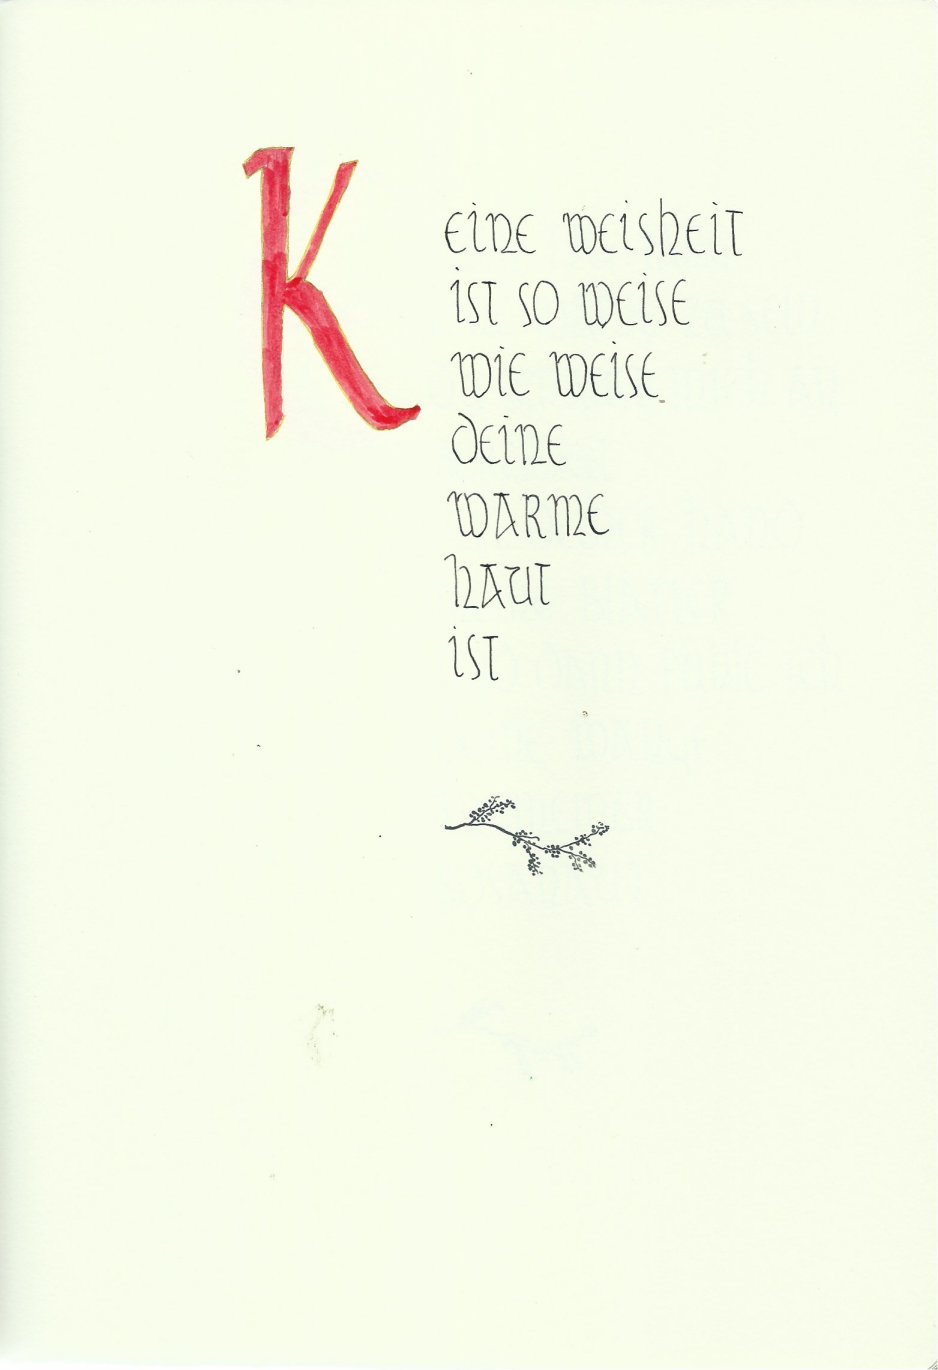 Keine Weisheit
ist so weise
wie weise
deine
warme
Haut
ist